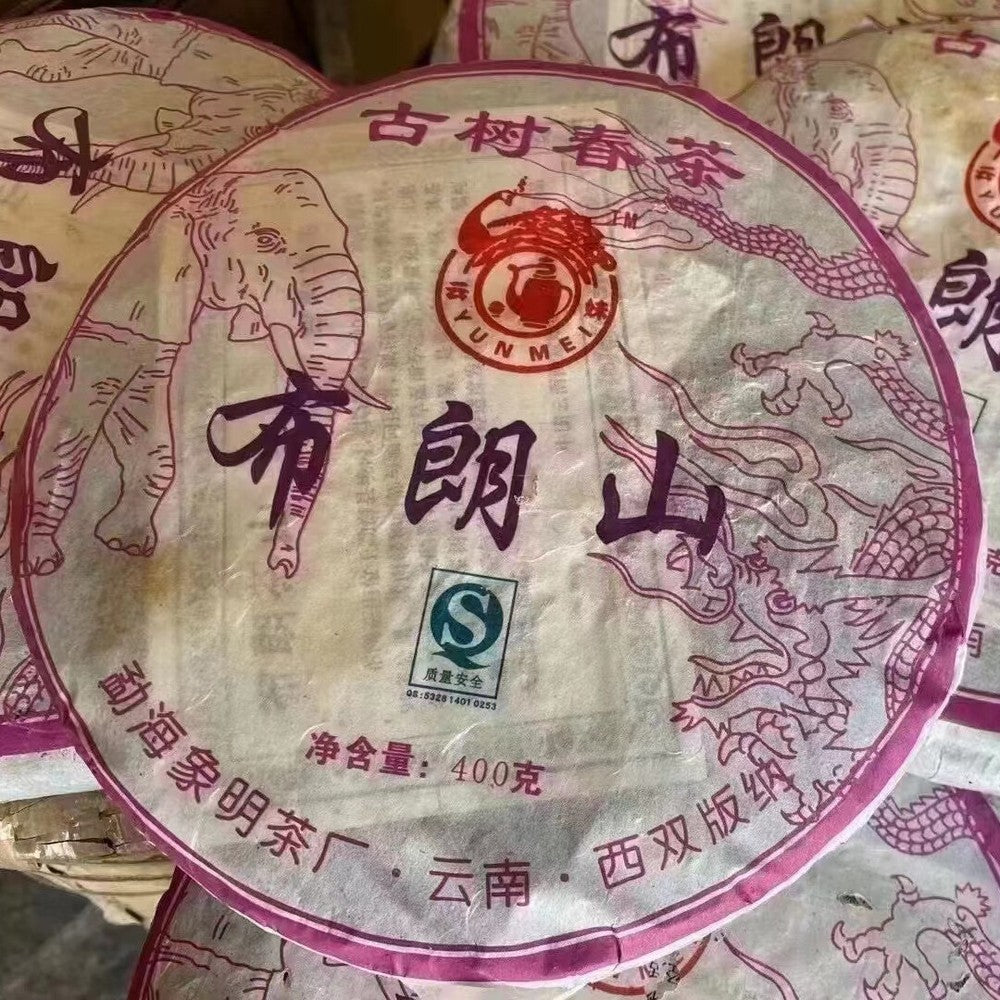 古树春茶
TM
云妹
YUN MEI
布朗山
S
质量安全
QS:5326 1401 0253
净含量：400克
勐海象明茶厂·云南·西双版纳
布朗
布朗
古
朗